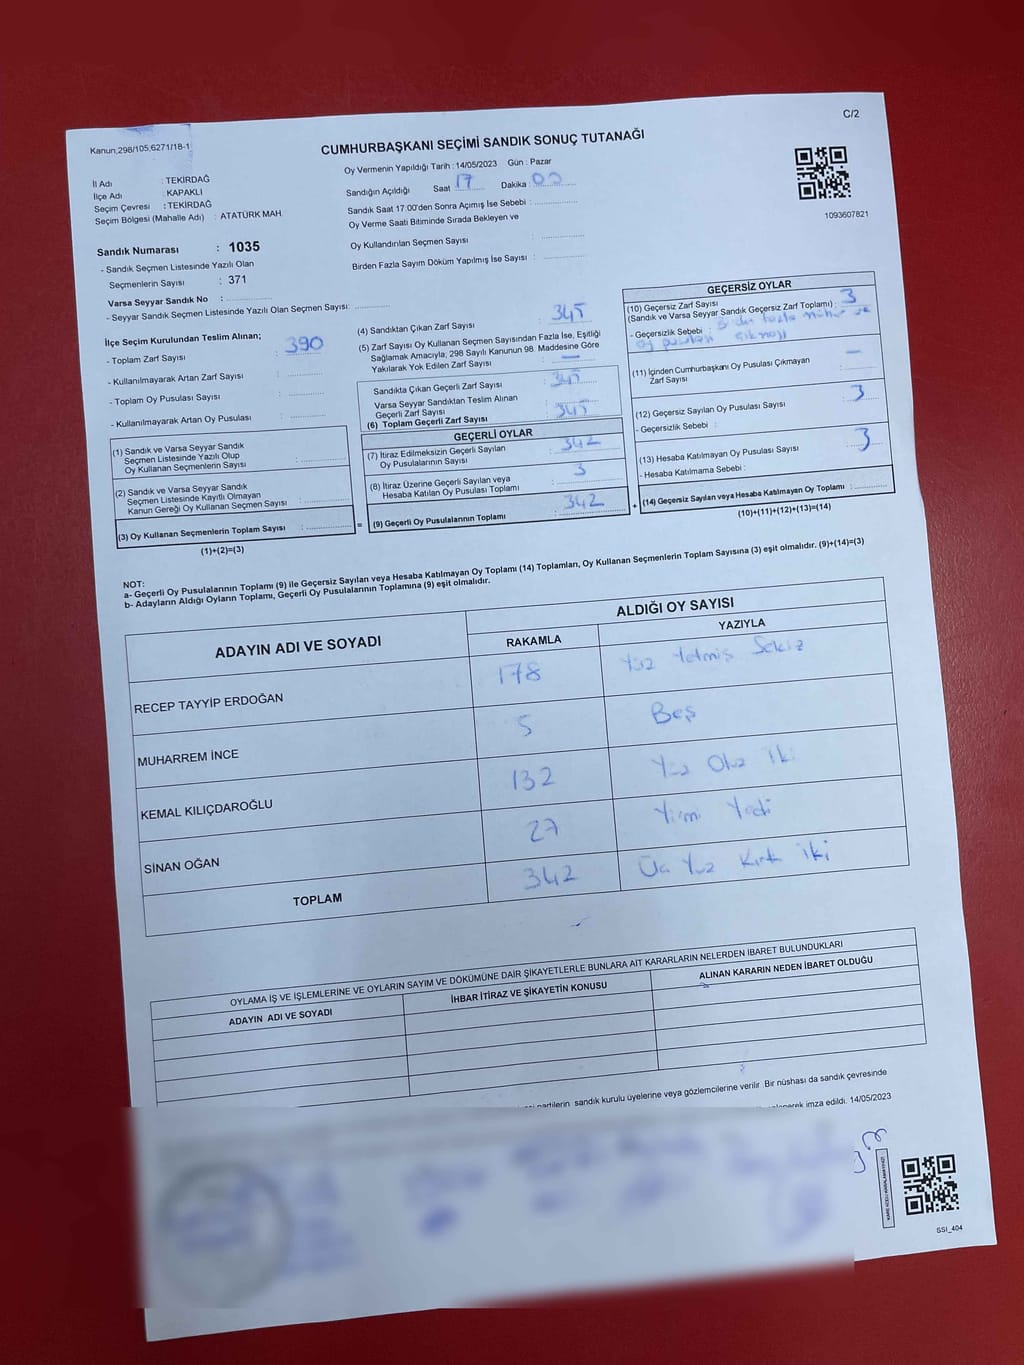 C/2
Kanun,298/105,6271/18-1
CUMHURBAŞKANI SEÇİMİ SANDIK SONUÇ TUTANAĞI
İl Adı : TEKİRDAĞ
İlçe Adı : KAPAKLI
Seçim Çevresi : TEKİRDAĞ
Seçim Bölgesi (Mahalle Adı) : ATATÜRK MAH.
Oy Vermenin Yapıldığı Tarih : 14/05/2023 Gün : Pazar
Sandığın Açıldığı Saat 17 Dakika : 00
Sandık Saat 17:00'den Sonra Açımış İse Sebebi :
Oy Verme Saati Bitiminde Sırada Bekleyen ve
Oy Kullandırılan Seçmen Sayısı :
Birden Fazla Sayım Döküm Yapılmış İse Sayısı :
1093607821
Sandık Numarası : 1035
- Sandık Seçmen Listesinde Yazılı Olan
Seçmenlerin Sayısı : 371
Varsa Seyyar Sandık No :
- Seyyar Sandık Seçmen Listesinde Yazılı Olan Seçmen Sayısı:
İlçe Seçim Kurulundan Teslim Alınan;
- Toplam Zarf Sayısı : 390
- Kullanılmayarak Artan Zarf Sayısı :
- Toplam Oy Pusulası Sayısı :
- Kullanılmayarak Artan Oy Pusulası :
(1) Sandık ve Varsa Seyyar Sandık
Seçmen Listesinde Yazılı Olup
Oy Kullanan Seçmenlerin Sayısı :
(2) Sandık ve Varsa Seyyar Sandık
Seçmen Listesinde Kayıtlı Olmayan
Kanun Gereği Oy Kullanan Seçmen Sayısı :
(3) Oy Kullanan Seçmenlerin Toplam Sayısı :
(1)+(2)=(3)
(4) Sandıktan Çıkan Zarf Sayısı : 345
(5) Zarf Sayısı Oy Kullanan Seçmen Sayısından Fazla İse, Eşitliği
Sağlamak Amacıyla, 298 Sayılı Kanunun 98. Maddesine Göre
Yakılarak Yok Edilen Zarf Sayısı : —
Sandıkta Çıkan Geçerli Zarf Sayısı : 345
Varsa Seyyar Sandıktan Teslim Alınan
Geçerli Zarf Sayısı
(6) Toplam Geçerli Zarf Sayısı : 345
GEÇERLİ OYLAR
(7) İtiraz Edilmeksizin Geçerli Sayılan
Oy Pusulalarının Sayısı : 342
(8) İtiraz Üzerine Geçerli Sayılan veya
Hesaba Katılan Oy Pusulası Toplamı : 3
= (9) Geçerli Oy Pusulalarının Toplamı : 342
GEÇERSİZ OYLAR
(10) Geçersiz Zarf Sayısı
(Sandık ve Varsa Seyyar Sandık Geçersiz Zarf Toplamı) : 3
- Geçersizlik Sebebi : 3 den fazla mühür ve
oy pusulası çıkması
(11) İçinden Cumhurbaşkanı Oy Pusulası Çıkmayan
Zarf Sayısı : —
(12) Geçersiz Sayılan Oy Pusulası Sayısı : 3
- Geçersizlik Sebebi :
(13) Hesaba Katılmayan Oy Pusulası Sayısı : 3
- Hesaba Katılmama Sebebi :
+ (14) Geçersiz Sayılan veya Hesaba Katılmayan Oy Toplamı :
(10)+(11)+(12)+(13)=(14)
NOT:
a- Geçerli Oy Pusulalarının Toplamı (9) ile Geçersiz Sayılan veya Hesaba Katılmayan Oy Toplamı (14) Toplamları, Oy Kullanan Seçmenlerin Toplam Sayısına (3) eşit olmalıdır. (9)+(14)=(3)
b- Adayların Aldığı Oyların Toplamı, Geçerli Oy Pusulalarının Toplamına (9) eşit olmalıdır.
ADAYIN ADI VE SOYADI
ALDIĞI OY SAYISI
RAKAMLA YAZIYLA
RECEP TAYYİP ERDOĞAN 178 Yüz Yetmiş Sekiz
MUHARREM İNCE 5 Beş
KEMAL KILIÇDAROĞLU 132 Yüz Otuz İki
SİNAN OĞAN 27 Yirmi Yedi
TOPLAM 342 Üç Yüz Kırk iki
OYLAMA İŞ VE İŞLEMLERİNE VE OYLARIN SAYIM VE DÖKÜMÜNE DAİR ŞİKAYETLERLE BUNLARA AİT KARARLARIN NELERDEN İBARET BULUNDUKLARI
ADAYIN ADI VE SOYADI İHBAR İTİRAZ VE ŞİKAYETİN KONUSU ALINAN KARARIN NEDEN İBARET OLDUĞU
partilerin sandık kurulu üyelerine veya gözlemcilerine verilir Bir nüshası da sandık çevresinde
imza edildi. 14/05/2023
SSI_404